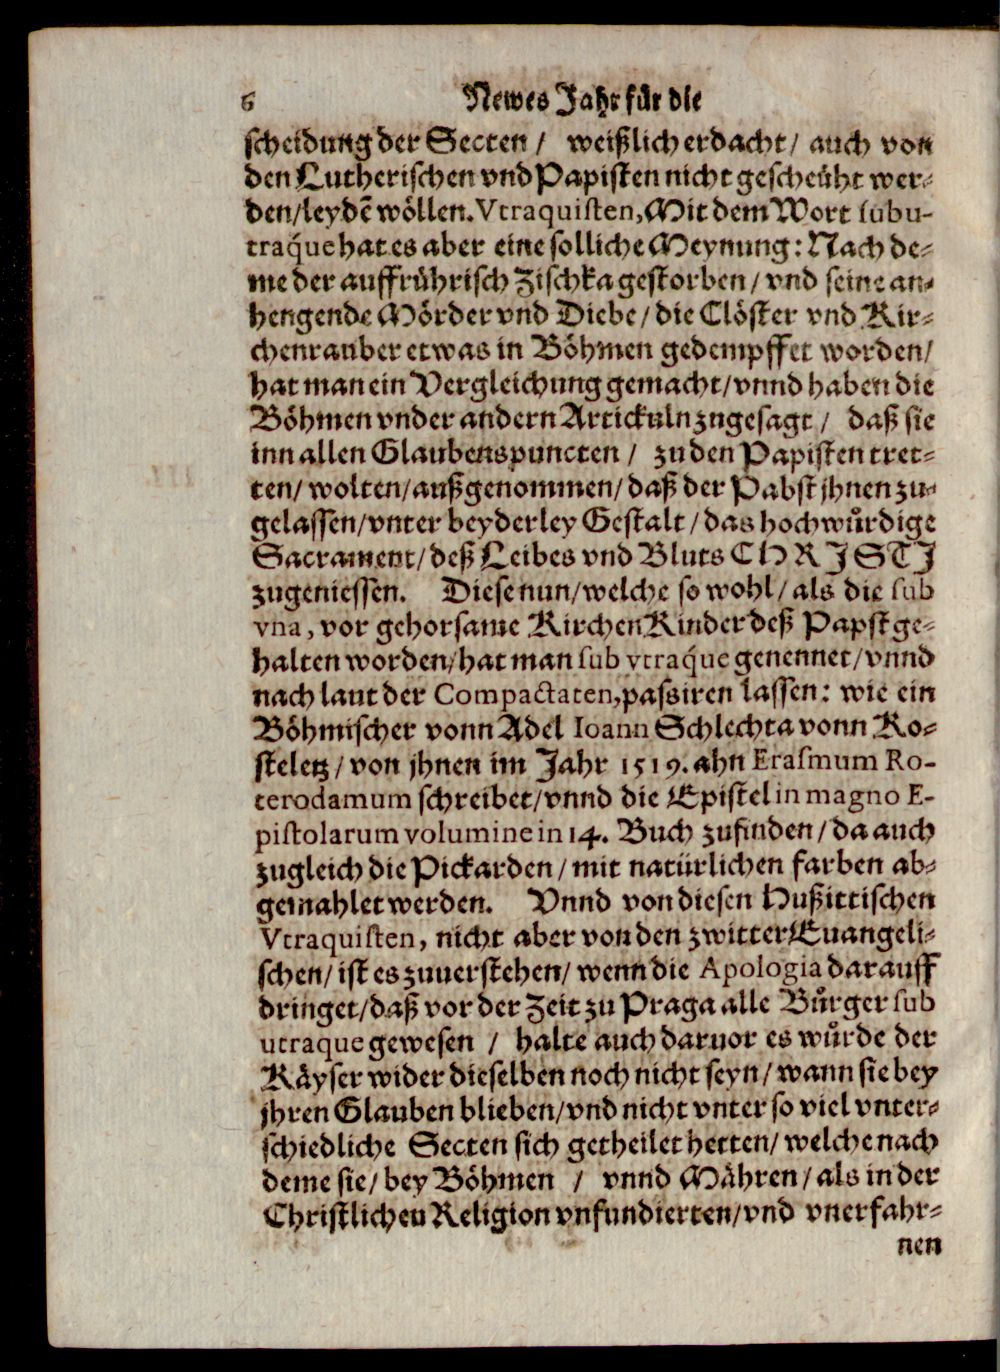 6 Newes Jahr für die
scheidung der Secten / weißlich erdacht / auch von
den Lutherischen vnd Papisten nicht gescheüht wer-
den/leydẽ wöllen. Vtraquisten, Mit dem Wort subu-
traq́ue hat es aber eine solliche Meynung: Nach de-
me der auffrührisch Zischka gestorben / vnd seine an-
hengende Mörder vnd Diebe / die Clöster vnd Kir-
chenrauber etwas in Böhmen gedempffet worden/
hat man ein Vergleichung gemacht/vnnd haben die
Böhmen vnder andern Artickuln zugesagt / daß sie
inn allen Glaubenspuncten / zu den Papisten tret-
ten/ wolten/außgenommen/ daß der Pabst jhnen zu-
gelassen/vnter beyderley Gestalt / das hochwůrdige
Sacrament/ deß Leibes vnd Bluts CHRJSTJ
zugeniessen. Diese nun/welche so wohl / als die sub
vna, vor gehorsame Kirchen Kinder deß Papst ge-
halten worden/hat man sub vtraq́ue genennet/vnnd
nach laut der Compactaten,passiren lassen: wie ein
Böhmischer vonn Adel Ioann Schlechta vonn Ko-
steletz / von jhnen im Jahr 1519. ahn Erasmum Ro-
terodamum schreibet/vnnd die Epistel in magno E-
pistolarum volumine in 14. Buch zufinden / da auch
zugleich die Pickarden / mit natürlichen farben ab-
gemahlet werden. Vnnd von diesen Hußittischen
Vtraquisten, nicht aber von den zwitter Euangeli-
schen/ ist es zuuerstehen/ wenn die Apologia darauff
dringet/daß vor der Zeit zu Praga alle Bůrger sub
utraque gewesen / halte auch daruor es wůrde der
Käyser wider dieselben noch nicht seyn/ wann sie bey
jhren Glauben blieben/vnd nicht vnter so viel vnter-
schiedliche Secten sich getheilet hetten/ welche nach
deme sie/ bey Böhmen / vnnd Mähren / als in der
Christlichen Religion vnfundierten/vnd vnerfahr-
nen